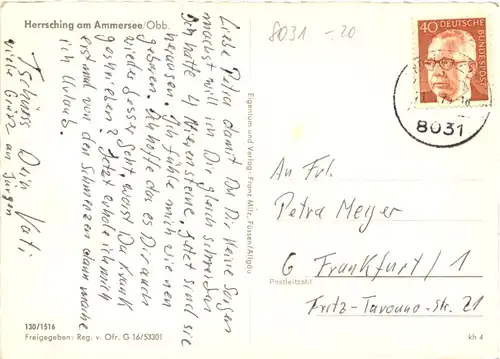 Herrsching am Ammersee/Obb.
8031 -.20
40 DEUTSCHE BUNDESPOST
8031
Liebe Petra damit Du Dir keine Sorgen
machst will ich Dir gleich schreiben
Ich hatte 4 Nierensteine, jetzt sind sie
heraussen. Ich fühle mich wie neu
geboren. Ich hoffe das es Dir auch
wieder besser geht, warst Du krank
geschrieben? Jetzt erhole ich mich
erst mal von den Schmerzen dann mache
ich Urlaub.
Tschüss Dein Kati
viele Grüße an Jürgen
Eigentum und Verlag: Franz Milz, Füssen/Allgäu
An Frl.
Petra Meyer
6 Frankfurt / 1
Postleitzahl
Str. 21
130/1516
Freigegeben: Reg. v. Ofr. G 16/53301
kh 4